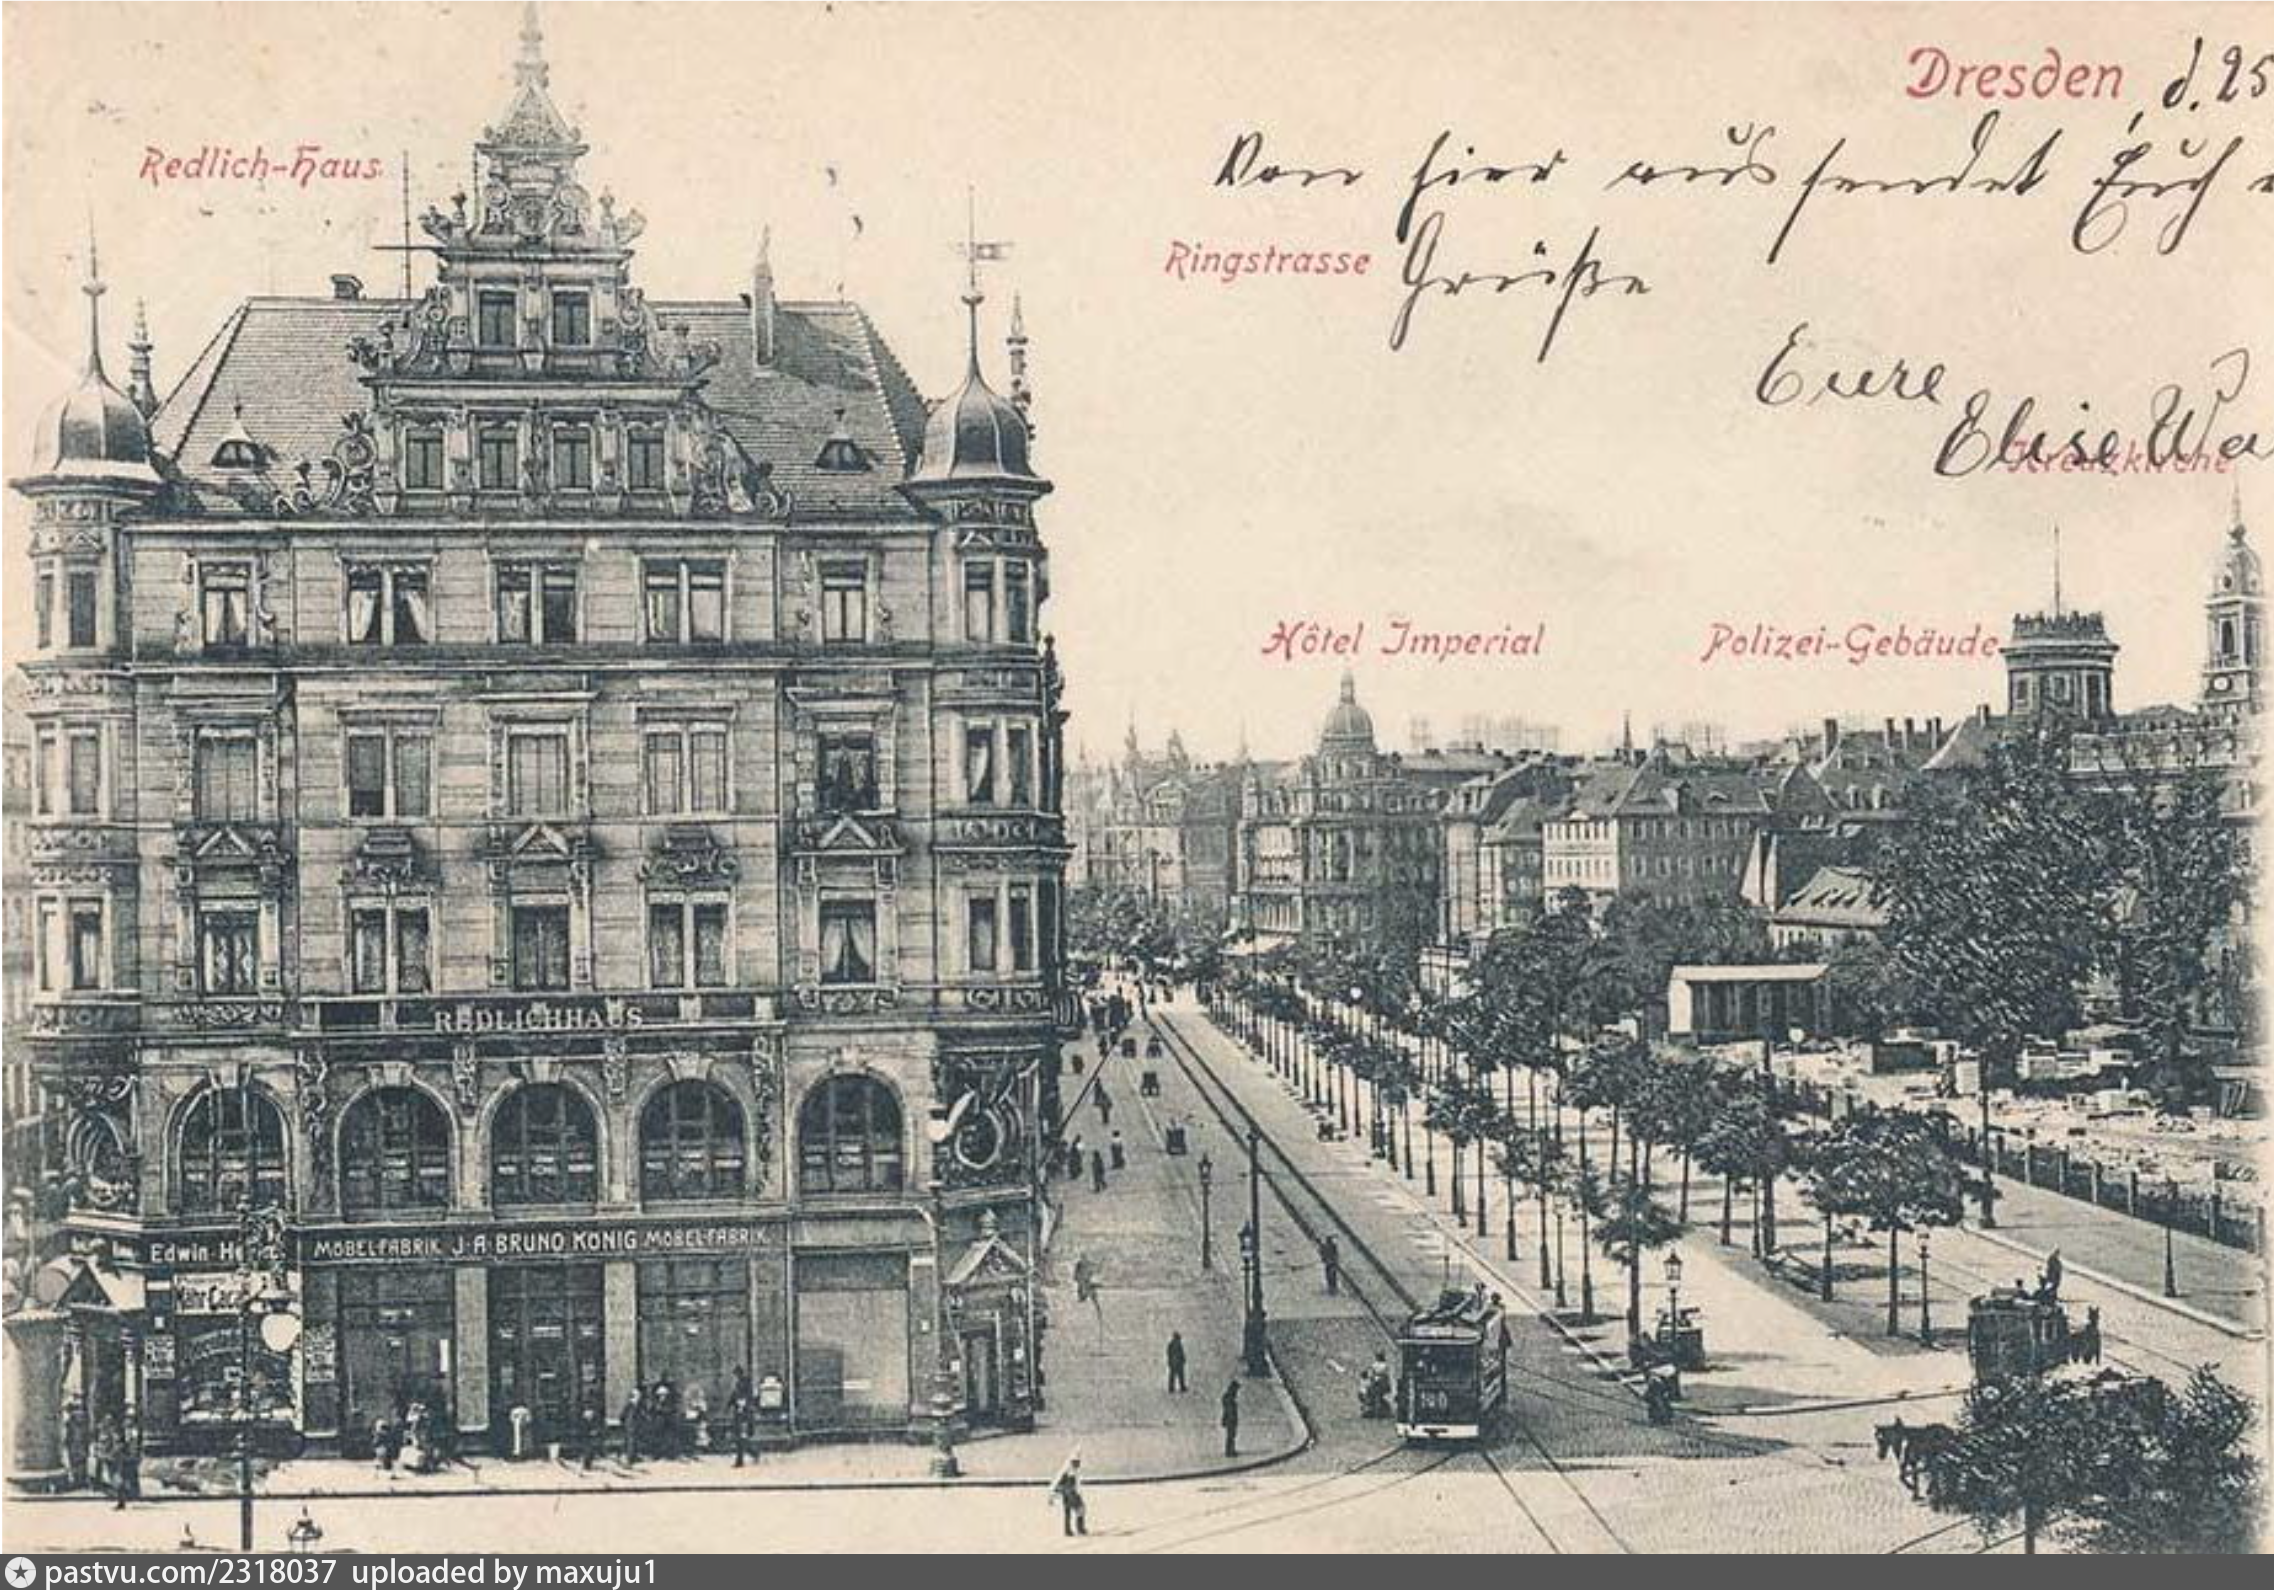 Dresden, d. 25
Redlich-Haus
Von hier aus sendet Euch
Ringstrasse
Grüße
Eure
Elise
Kreuzkirche
Hôtel Imperial
Polizei-Gebäude
REDLICHHAUS
Edwin
MÖBELFABRIK J.A. BRUNO KÖNIG MÖBELFABRIK
pastvu.com/2318037 uploaded by maxuju1